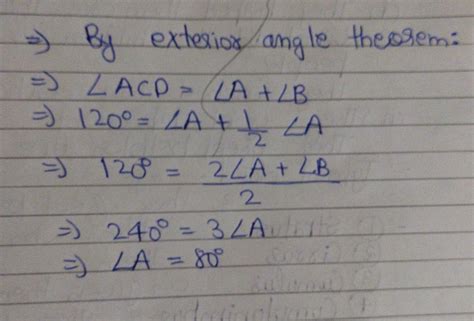 ⇒ By exterior angle theorem:
⇒ ∠ACD = ∠A + ∠B
⇒ 120° = ∠A + 1/2 ∠A
⇒ 120° = (2∠A + ∠B)/2
⇒ 240° = 3∠A
⇒ ∠A = 80°